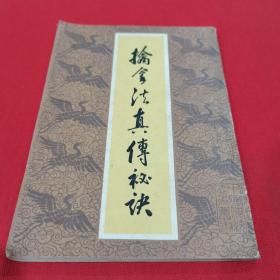 擒拿法真傳祕訣